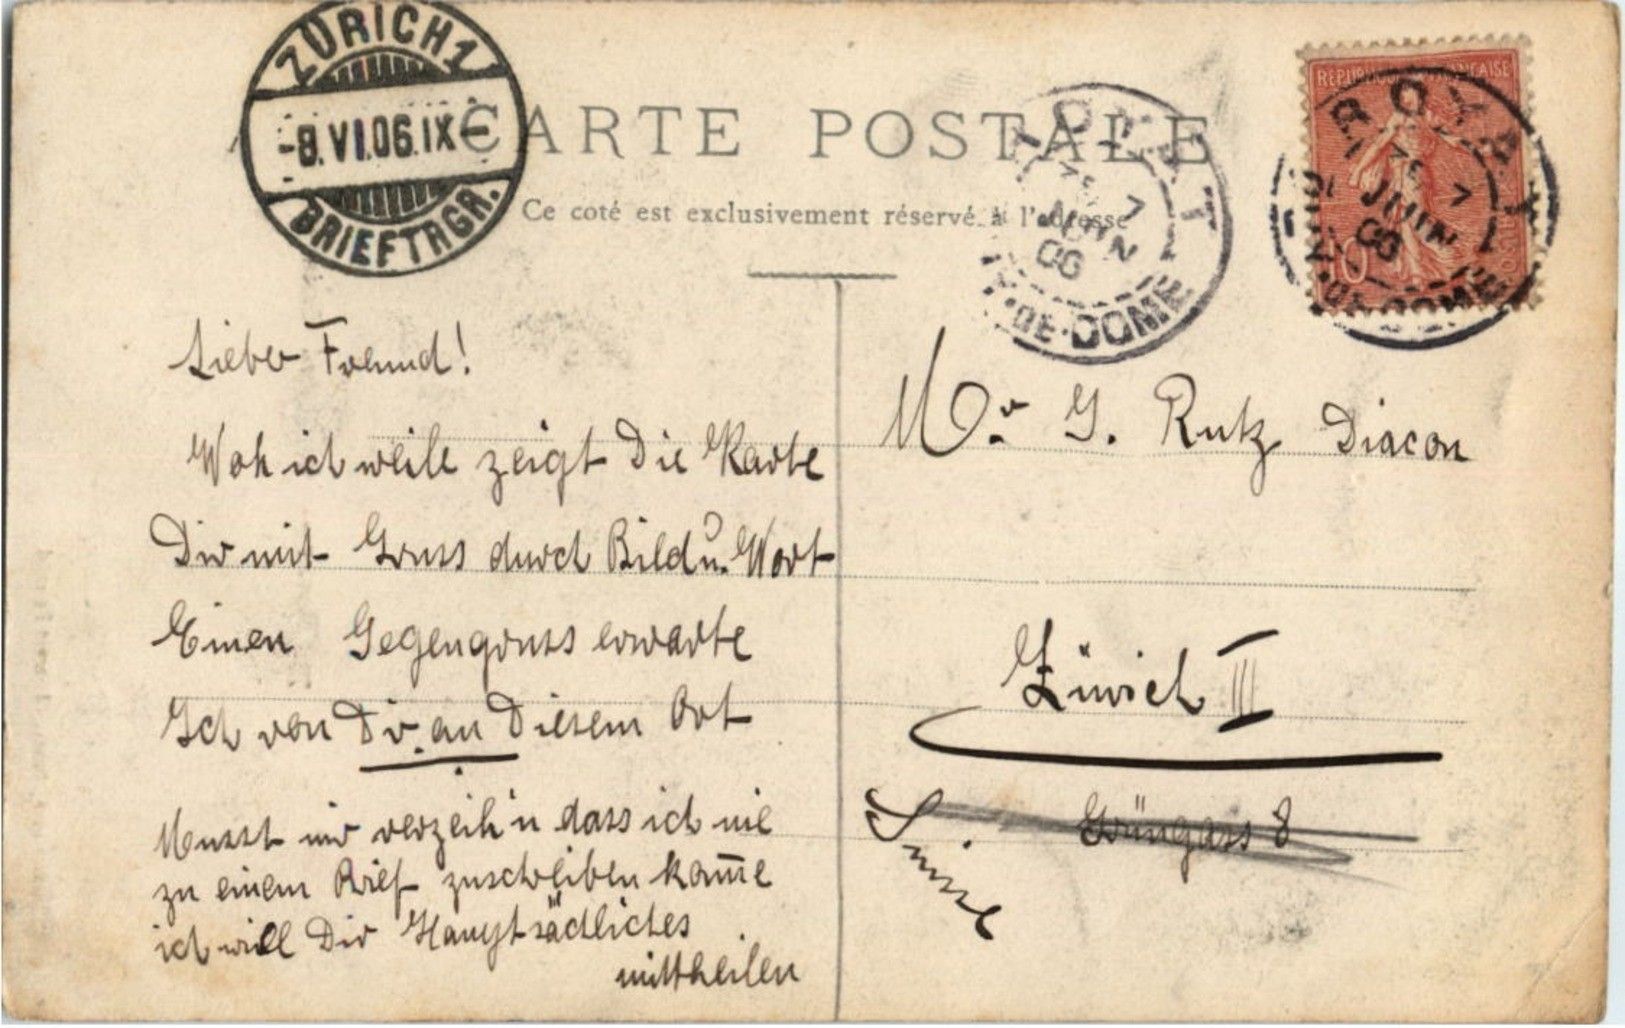 ZÜRICH 1
-8.VI.06.IX-
BRIEFTRGR.
CARTE POSTALE
Ce coté est exclusivement réservé à l'adresse
7
JUIN
06
DE-DOME
RÉPUBLIQUE FRANÇAISE
10
7
JUIN
06
DE-DOME
Lieber Freund!
Woh ich weile zeigt Die Karte
Dir mit Gruss durch Bild u. Wort
Einen Gegengruss erwarte
Ich von Dir an Diesem Ort
Musst mir verzeih'n dass ich nie
zu einem Brief zuschreiben kom̅e
ich will Dir Hauptsächliches
mittheilen
Mr. G. Rutz Diacon
Zürich III
Grüngass 8
Suisse